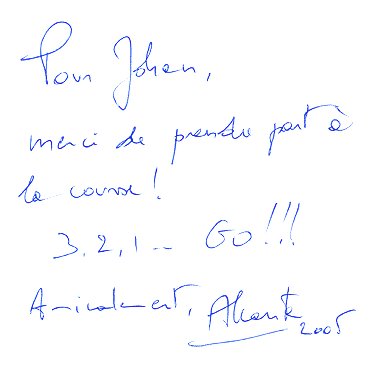 Pour Johan,
merci de prendre part à
la course !
3, 2, 1 ... GO !!!
Amicalement, Akonte
2005